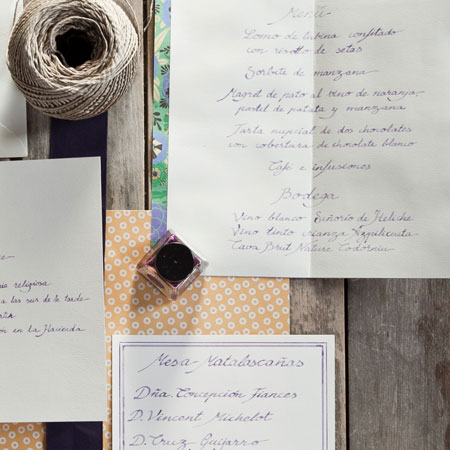 Menú
Lomo de lubina confitado
con risotto de setas
Sorbete de manzana
Magret de pato al vino de naranja,
pastel de patata y manzana
Tarta nupcial de dos chocolates
con cobertura de chocolate blanco
Café e infusiones
Bodega
Vino blanco Señorío de Heliche
Vino tinto crianza Azpilicueta
Cava Brut Nature Codorníu
religiosa
a las seis de la tarde
en la Hacienda
Mesa Matalascañas
Dña. Concepción Frances
D. Vincent Michelot
D. Cruz Guijarro